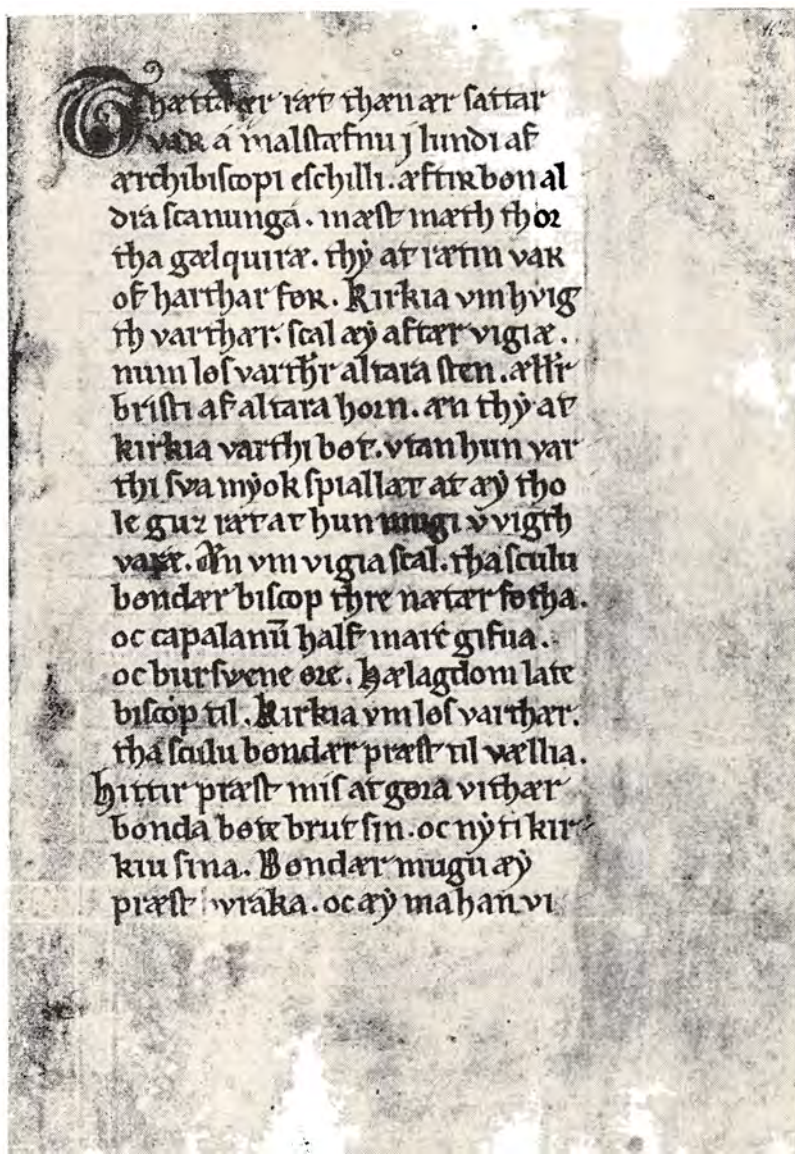 Thætta ær ræt thæn ær sattar
var a malstæfnu j lundi af
ærchibiscopi eschilli. æftir bøn al
dra scanunga. mæst mæth thor
tha gælquiræ. thẏ at rætin var
of harthar for. Kirkia vm hvig
th varthær. scal æẏ aftær vigiæ.
num løs varthr altara sten. ællir
bristi af altara horn. æn thẏ at
kirkia varthi bøt. vtan hun var
thi sva mẏok spiallæt at æẏ tho
le guz ræt at hun mugi v vigth
varæ. Æn vm vigia scal. tha sculu
bøndær biscop thre nætær føtha.
oc capalanū half marc gifua.
oc bursvene øre. Hælagdom late
biscop til. Kirkia vm løs varthær.
tha sculu bøndær præst til vællia.
Hittir præst mis at gøra vithær
bonda bøte brut sin. oc nẏti kir
kiu sina. Bøndær mugu æẏ
præst wraka. oc æẏ ma han vi